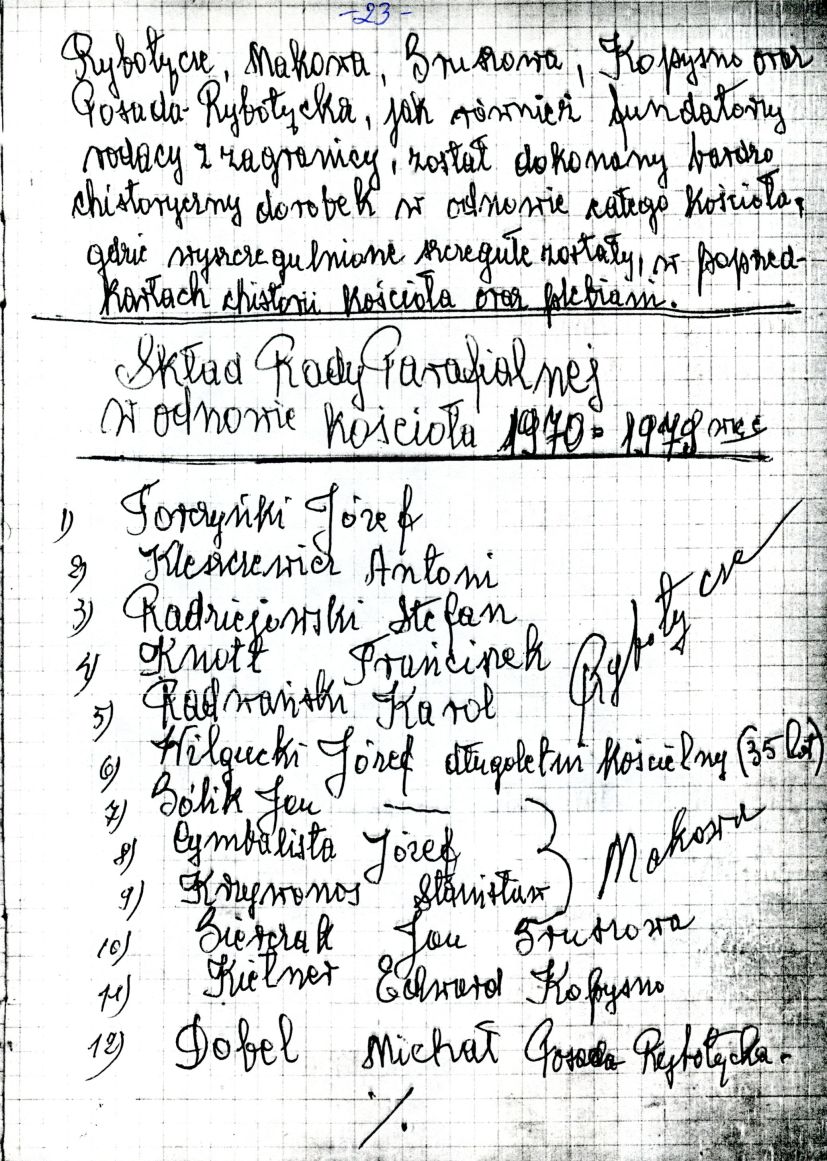 -23-
Rybotycze, Makowa, Bruszowa, Kopysno oraz
Posada-Rybotycka, jak również fundatorzy
rodacy z zagranicy, został dokonany bardzo
chistoryczny dorobek w odnowie całego Kościoła,
gdzie wyszczegulnione szczegułe zostały, w poprzed-
kartach chistorii Kościoła oraz plebiani.
Skład Rady Parafialnej
w odnowie Kościoła 1970-1979
1) Torzyński Józef
2) Kleszczewicz Antoni
3) Radziejowski Stefan
4) Knott Franciszek
Rybotycze
5) Radwański Karol
6) Wilgucki Józef długoletni kościelny (35 lat)
7) Bólik Jan
8) Cymbalista Józef
Makowa
9) Krzywonos Stanisław
10) Bieszczak Jan Bruszowa
11) Kielner Edward Kopysno
12) Dobel Michał Posada Rybotycka.
./.